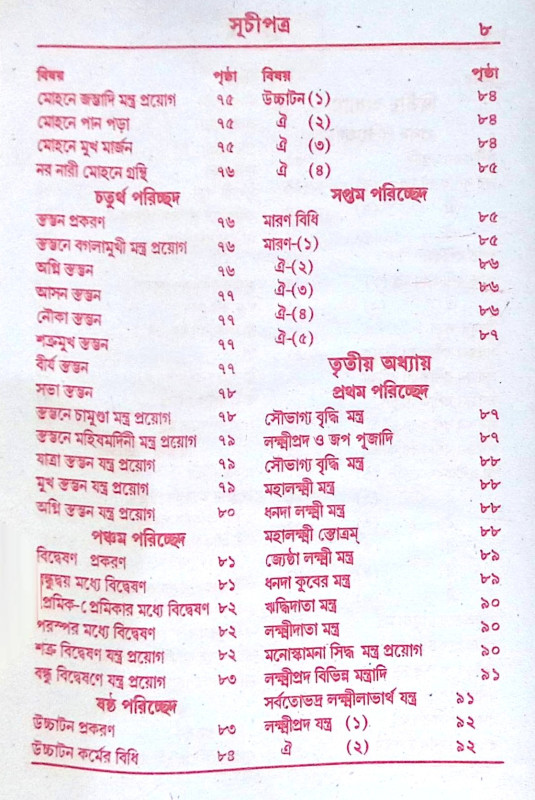 সূচীপত্র ৮
বিষয় পৃষ্ঠা
মোহনে জন্তাদি মন্ত্র প্রয়োগ ৭৫
মোহনে পান পড়া ৭৫
মোহনে মুখ মার্জন ৭৫
নর নারী মোহনে গ্রন্থি ৭৬
চতুর্থ পরিচ্ছেদ
স্তম্ভন প্রকরণ ৭৬
স্তম্ভনে বগলামুখী মন্ত্র প্রয়োগ ৭৬
অগ্নি স্তম্ভন ৭৬
আসন স্তম্ভন ৭৭
নৌকা স্তম্ভন ৭৭
শত্রুমুখ স্তম্ভন ৭৭
বীর্য স্তম্ভন ৭৭
সভা স্তম্ভন ৭৮
স্তম্ভনে চামুণ্ডা মন্ত্র প্রয়োগ ৭৮
স্তম্ভনে মহিষমদিনী মন্ত্র প্রয়োগ ৭৯
যাত্রা স্তম্ভন যন্ত্র প্রয়োগ ৭৯
মুখ স্তম্ভন যন্ত্র প্রয়োগ ৭৯
অগ্নি স্তম্ভন যন্ত্র প্রয়োগ ৮০
পঞ্চম পরিচ্ছেদ
বিদ্বেষণ প্রকরণ ৮১
মধ্যে বিদ্বেষণ ৮১
প্রেমিক-প্রেমিকার মধ্যে বিদ্বেষণ ৮২
পরস্পর মধ্যে বিদ্বেষণ ৮২
শত্রু বিদ্বেষণ যন্ত্র প্রয়োগ ৮২
বন্ধু বিদ্বেষণে যন্ত্র প্রয়োগ ৮৩
ষষ্ঠ পরিচ্ছেদ
উচ্চাটন প্রকরণ ৮৩
উচ্চাটন কর্মের বিধি ৮৪
বিষয় পৃষ্ঠা
উচ্চাটন (১) ৮৪
ঐ (২) ৮৪
ঐ (৩) ৮৪
ঐ (৪) ৮৫
সপ্তম পরিচ্ছেদ
মারণ বিধি ৮৫
মারণ-(১) ৮৫
ঐ-(২) ৮৬
ঐ-(৩) ৮৬
ঐ-(৪) ৮৬
ঐ-(৫) ৮৭
তৃতীয় অধ্যায়
প্রথম পরিচ্ছেদ
সৌভাগ্য বৃদ্ধি মন্ত্র ৮৭
লক্ষ্মীপ্রদ ও জপ পূজাদি ৮৭
সৌভাগ্য বৃদ্ধি মন্ত্র ৮৮
মহালক্ষ্মী মন্ত্র ৮৮
ধনদা লক্ষ্মী মন্ত্র ৮৮
মহালক্ষ্মী স্তোত্রম্ ৮৮
জ্যেষ্ঠা লক্ষ্মী মন্ত্র ৮৯
ধনদা কুবের মন্ত্র ৮৯
ঋদ্ধিদাতা মন্ত্র ৯০
লক্ষ্মীদাতা মন্ত্র ৯০
মনোস্কামনা সিদ্ধ মন্ত্র প্রয়োগ ৯০
লক্ষ্মীপ্রদ বিভিন্ন মন্ত্রাদি ৯১
সর্বতোভদ্র লক্ষ্মীলাভার্থ যন্ত্র ৯১
লক্ষ্মীপ্রদ যন্ত্র (১) ৯২
ঐ (২) ৯২